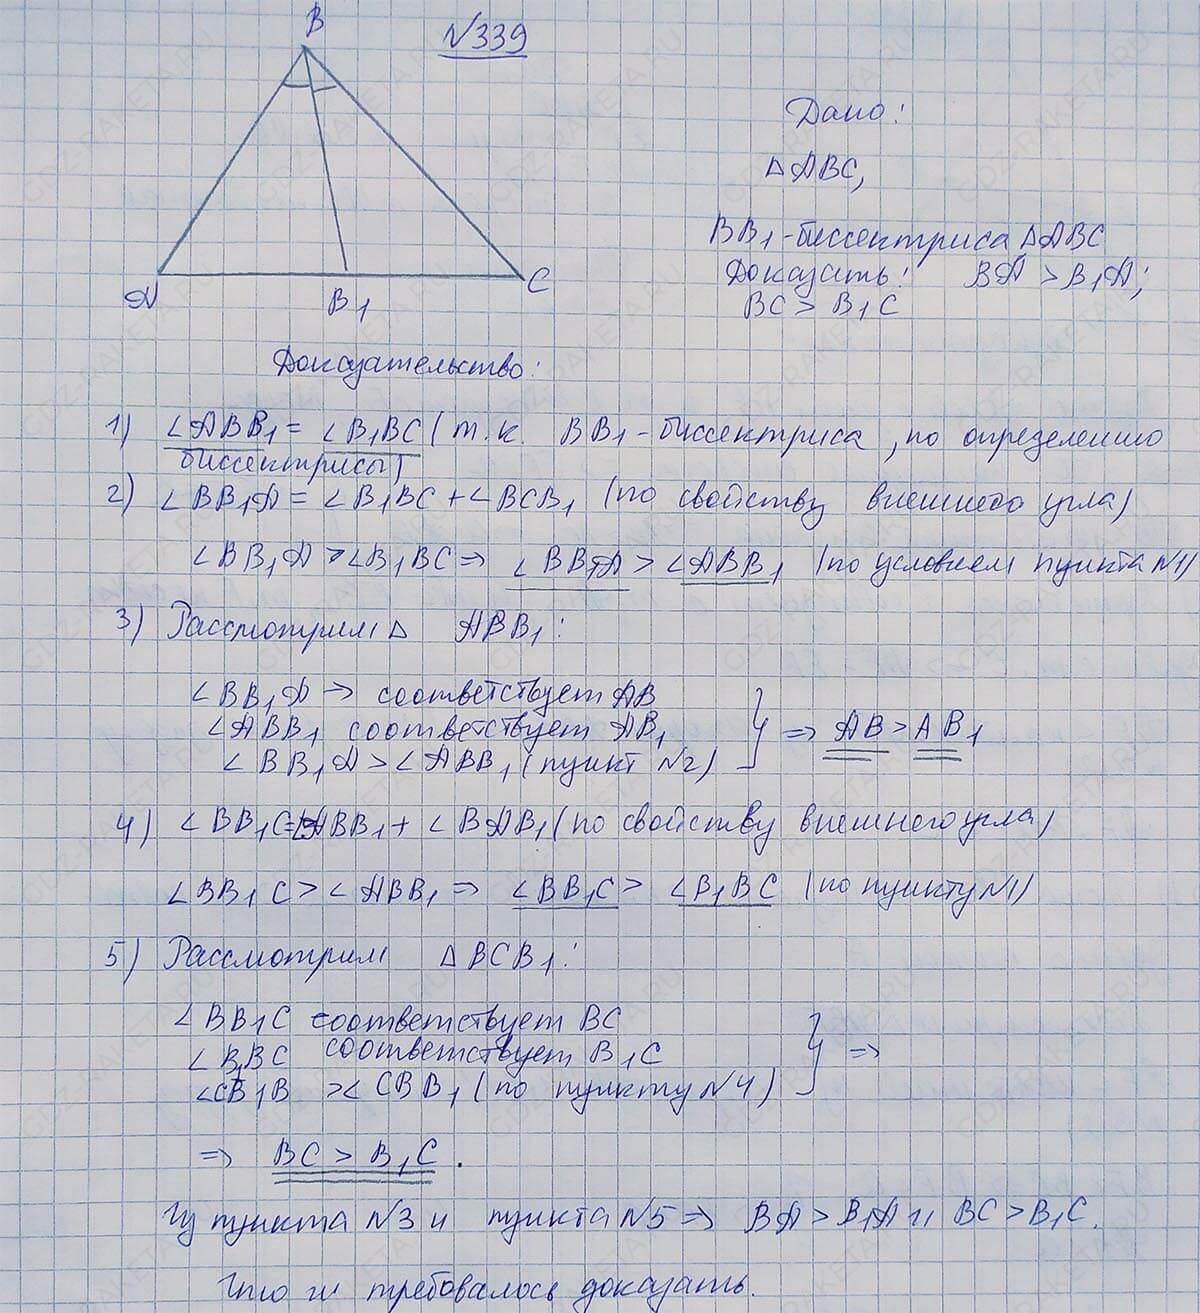 B
№339
Дано:
△ABC,
BB₁-биссектриса △ABC
Доказать: BA > B₁A;
BC > B₁C
A
B₁
C
Доказательство:
1) ∠ABB₁ = ∠B₁BC (т.к. BB₁ - биссектриса, по определению
биссектрисы)
2) ∠BB₁A = ∠B₁BC + ∠BCB₁ (по свойству внешнего угла)
∠BB₁A > ∠B₁BC ⇒ ∠BB₁A > ∠ABB₁ (по условием пункта №1)
3) Рассмотрим △ ABB₁:
∠BB₁A → соответствует AB
∠ABB₁ соответствует AB₁
∠BB₁A > ∠ABB₁ (пункт №2) } ⇒ AB > AB₁
4) ∠BB₁C = ∠ABB₁ + ∠BAB₁ (по свойству внешнего угла)
∠BB₁C > ∠ABB₁ ⇒ ∠BB₁C > ∠B₁BC (по пункту №1)
5) Рассмотрим △BCB₁:
∠BB₁C соответствует BC
∠B₁BC соответствует B₁C
∠CB₁B > ∠CBB₁ (по пункту №4) } ⇒
⇒ BC > B₁C.
Из пункта №3 и пункта №5 ⇒ BA > B₁A и BC > B₁C.
Что и требовалось доказать.
GDZ-RAKETA.RU